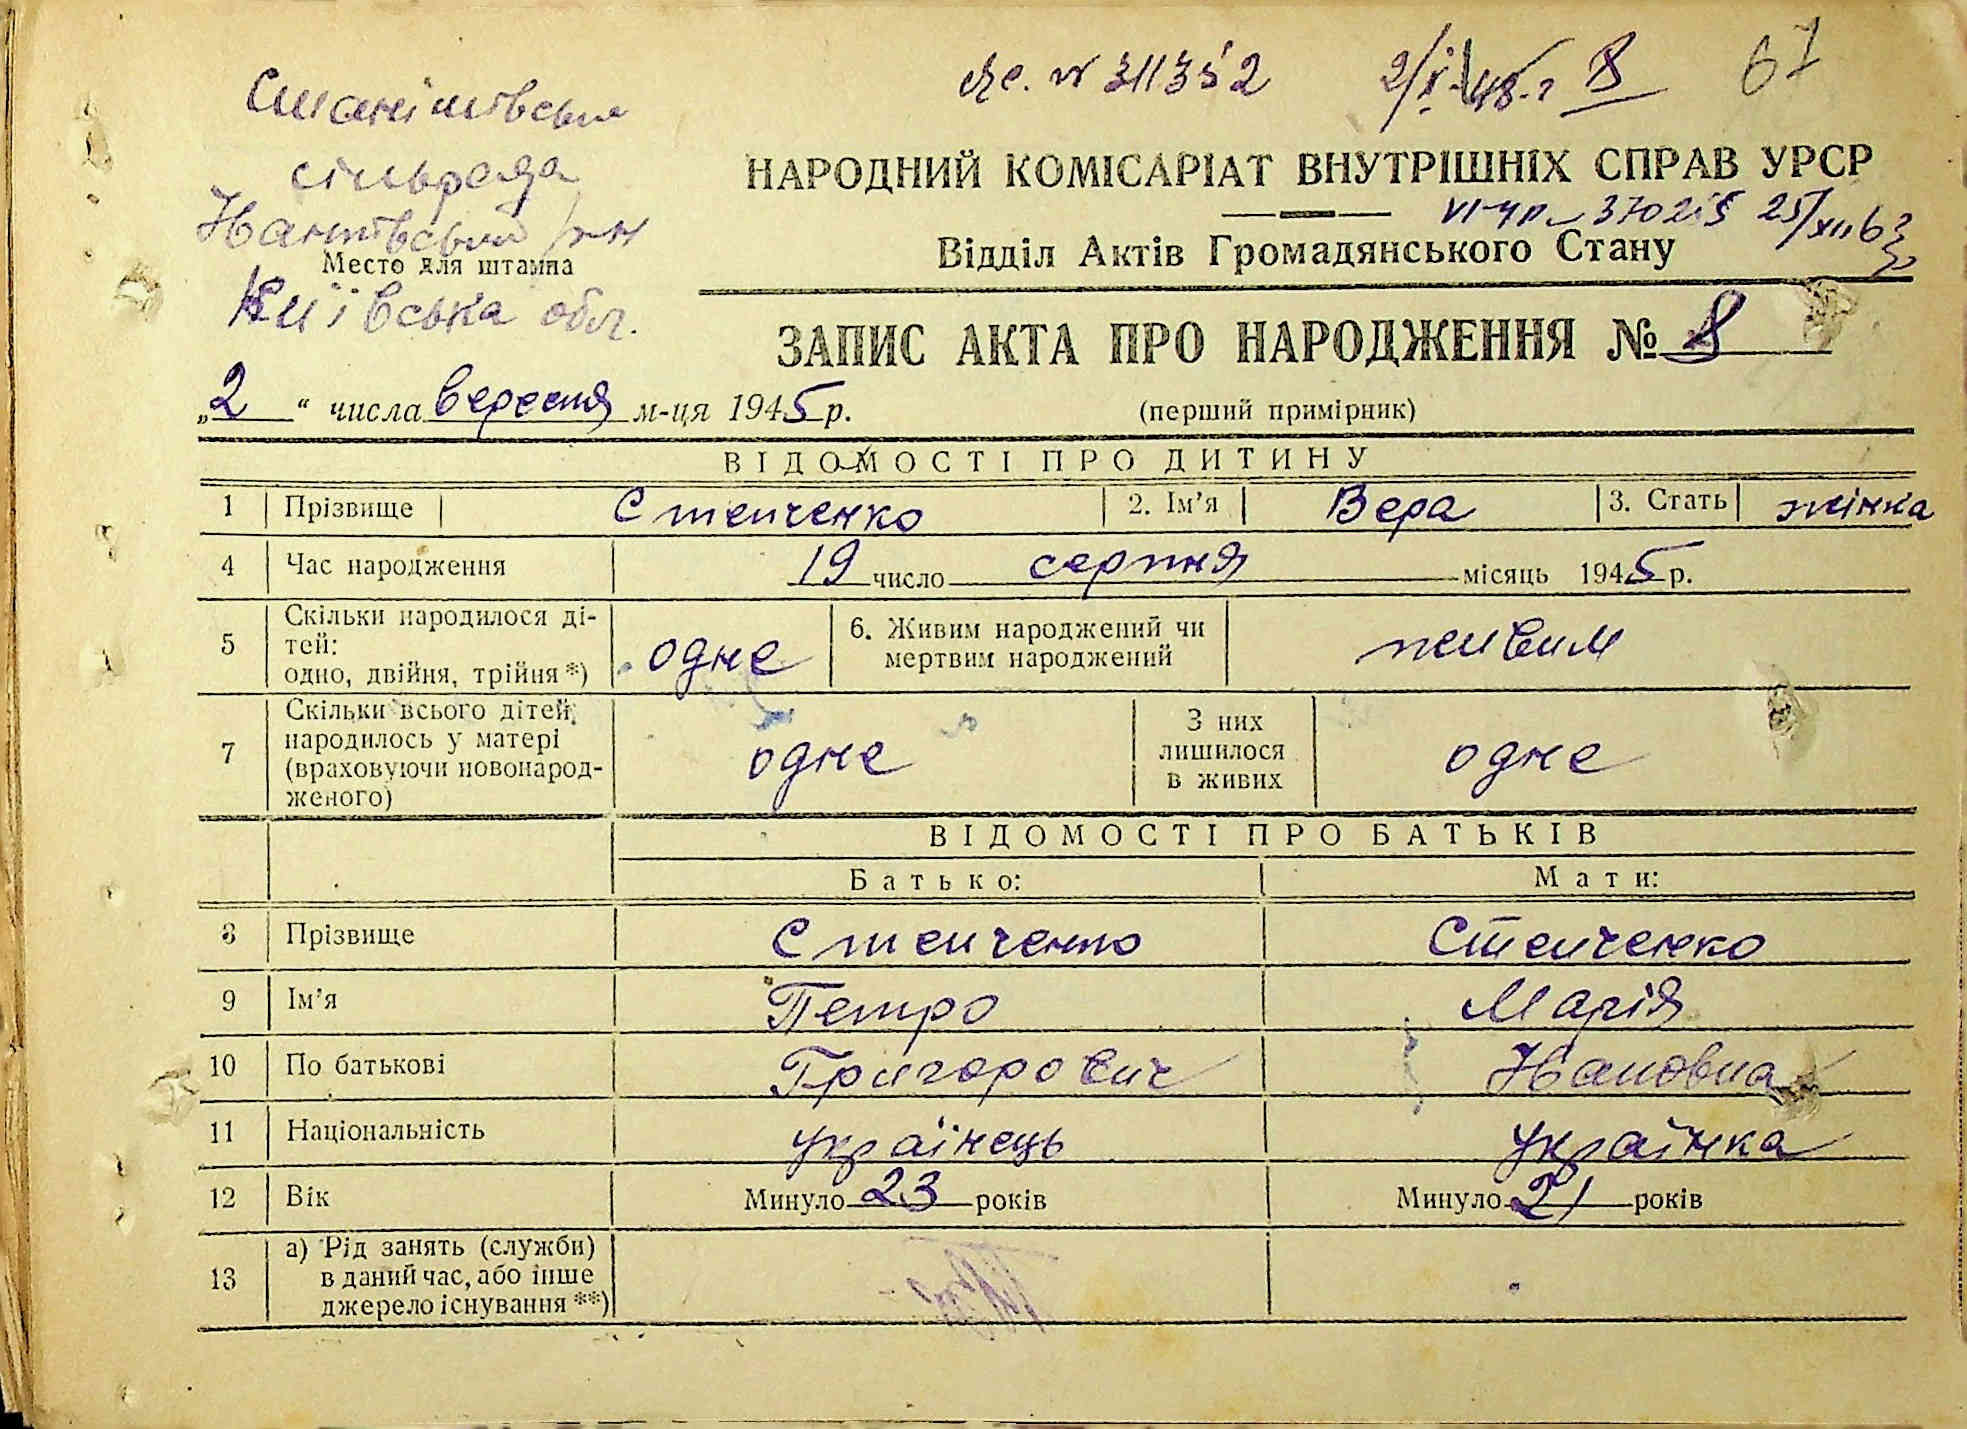 № 311352 67
сільрада
НАРОДНИЙ КОМІСАРІАТ ВНУТРІШНІХ СПРАВ УРСР
37021
Відділ Актів Громадянського Стану
Место для штампа
Київська обл.
ЗАПИС АКТА ПРО НАРОДЖЕННЯ № 8
„2“ числа вересня м-ця 1945 р. (перший примірник)
ВІДОМОСТІ ПРО ДИТИНУ
1 Прізвище Степченко 2. Ім'я Вера 3. Стать жінка
4 Час народження 19 число серпня місяць 1945 р.
5 Скільки народилося ді-
тей:
одно, двійня, трійня *) одне 6. Живим народжений чи
мертвим народжений живим
7 Скільки всього дітей,
народилось у матері
(враховуючи новонарод-
женого) одне З них
лишилося
в живих одне
ВІДОМОСТІ ПРО БАТЬКІВ
Батько: Мати:
8 Прізвище Степченко Степченко
9 Ім'я Петро Марія
10 По батькові Григорович
11 Національність українець українка
12 Вік Минуло 23 років Минуло 21 років
13 а) Рід занять (служби)
в даний час, або інше
джерело існування **)